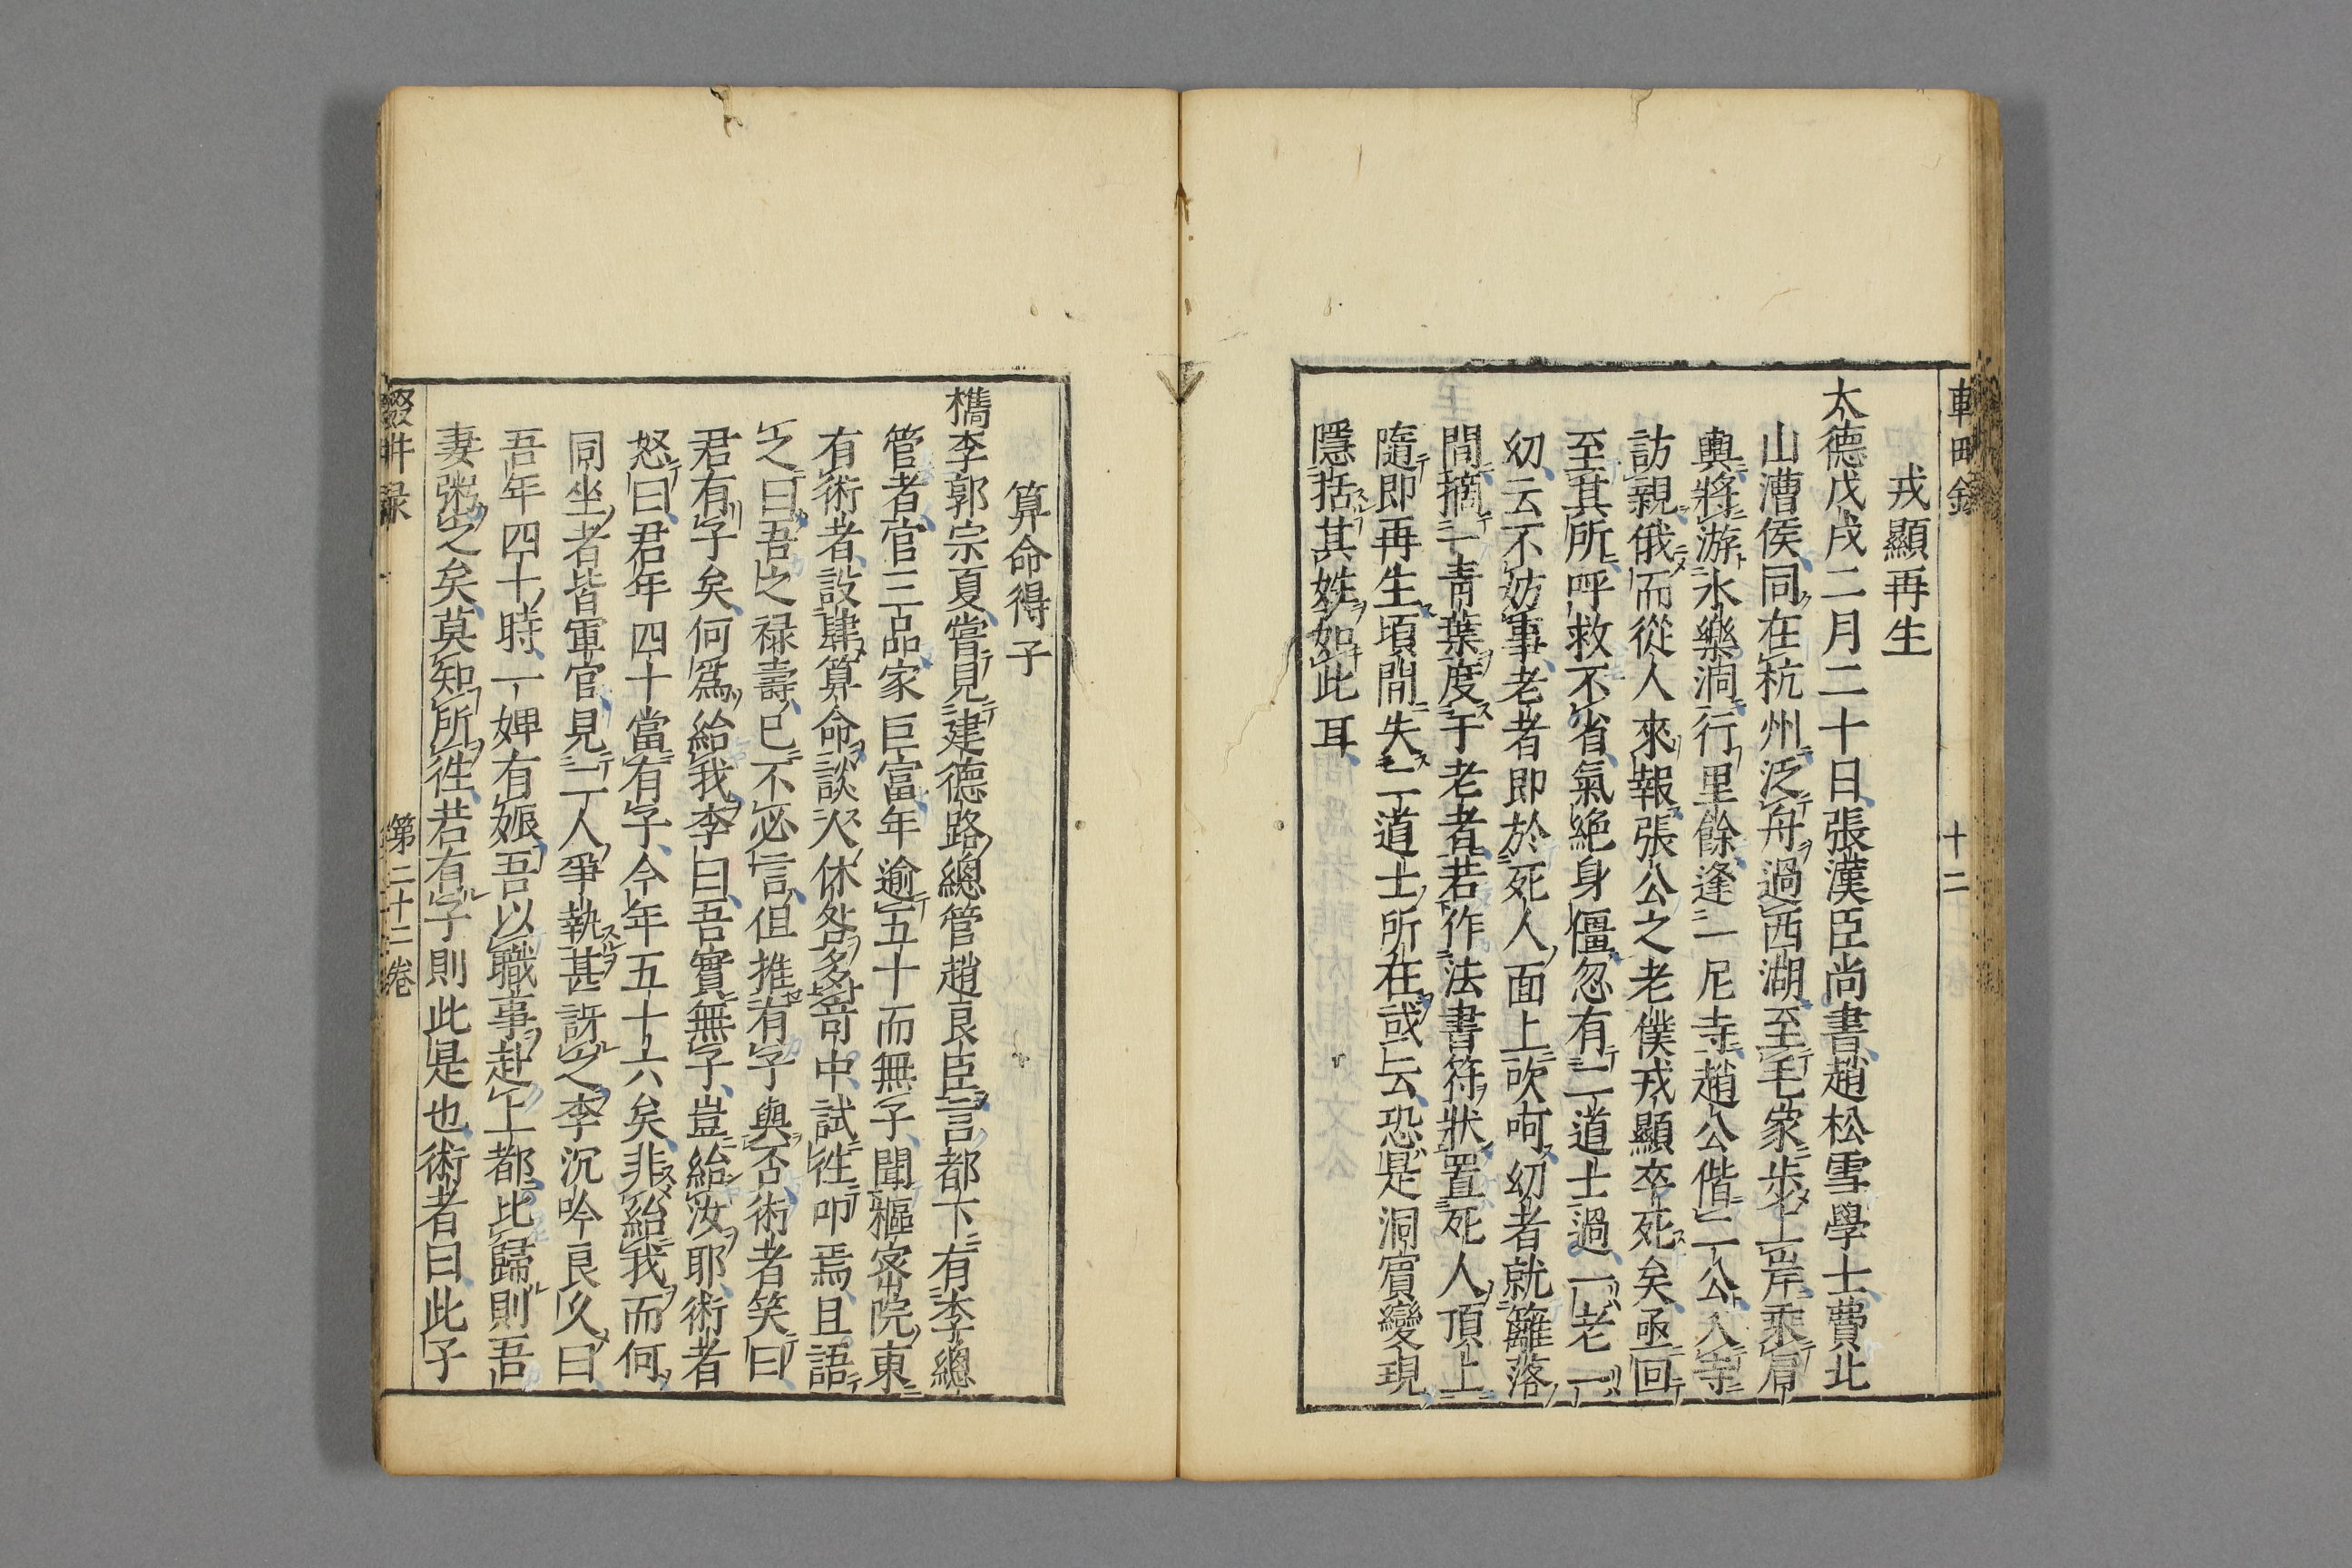 十二
戎顯再生
大德戊戌二月二十日張漢臣尚書趙松雪學士費北
山漕侯同在杭州泛舟過西湖至毛家步上岸乘肩
輿將游水樂洞行里餘逢一尼寺趙公偕二公入寺
訪親俄而從人來報張公之老僕戎顯卒死矣亟回
至其所呼救不省氣絶身僵忽有二道士過一老一
幼云不妨事老者即於死人面上吹呵幼者就籬落
間摘一青葉度于老者若作法書符狀置死人頂上
隨即再生頃間失二道士所在或云恐是洞賓變現
隱括其姓如此耳
算命得子
檇李郭宗夏嘗見建德路總管趙良臣言都下有李總
管者官三品家巨富年逾五十而無子聞樞密院東
有術者設肆算命談人休咎多奇中試往叩焉且語
之曰吾之禄壽已不必言但推有子與否術者笑曰
君有子矣何爲給我李曰吾實無子豈給汝耶術者
怒曰君年四十當有子今年五十六矣非紿我而何
同坐者皆軍官見二人爭執甚訝之李沉吟良久曰
吾年四十時一婢有娠吾以職事赴上都比歸則吾
妻粥之矣莫知所往若有子則此是也術者曰此子
輟畊録
第二十二卷